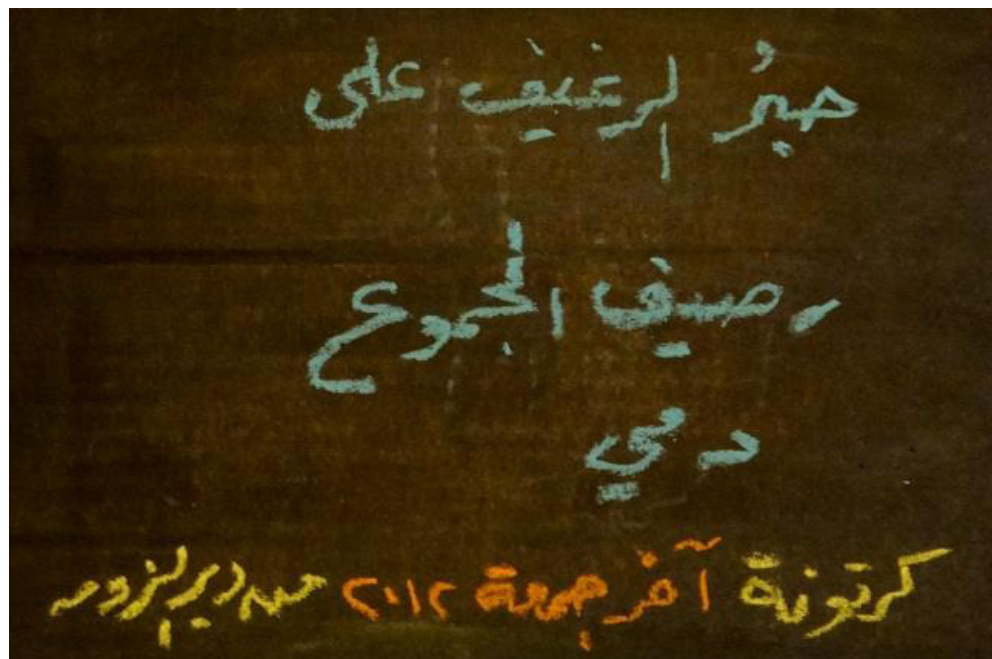 حبرُ الرغيف على
رصيف الجموع
دمي
كرتونة آخر جمعة ٢٠١٢ من دير الزور